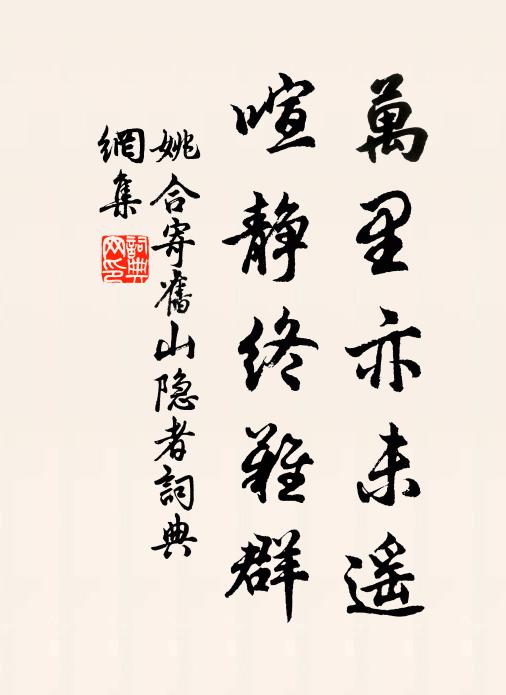 萬里亦未遥
喧静終難群
姚合寄舊山隐者詞典
網集
詞典
网印